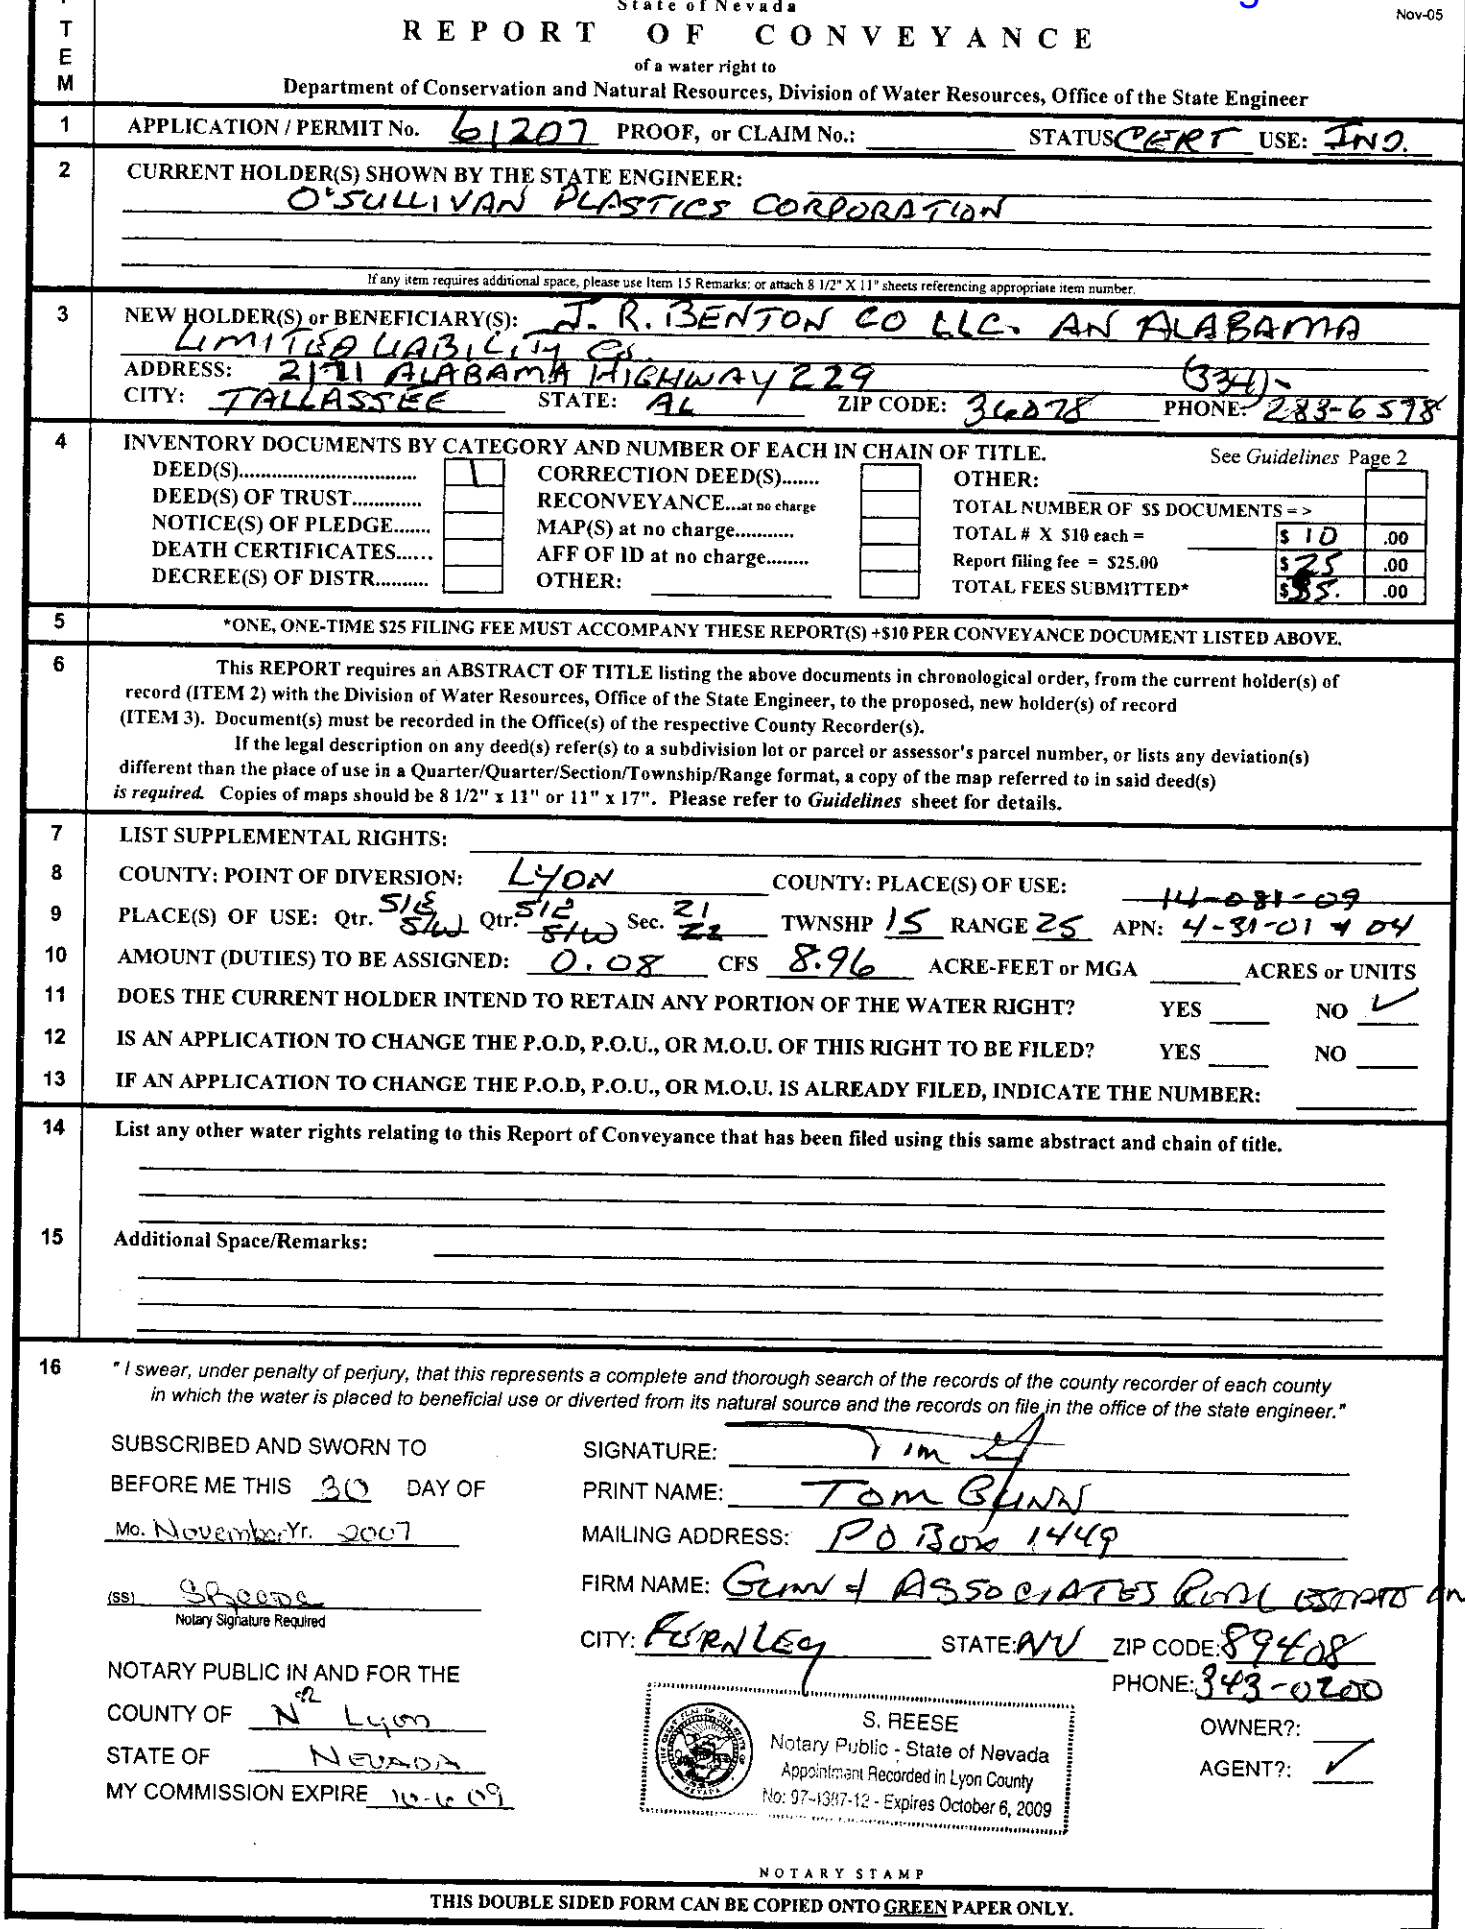 T
E
M
State of Nevada
Nov-05
REPORT OF CONVEYANCE
of a water right to
Department of Conservation and Natural Resources, Division of Water Resources, Office of the State Engineer
1 APPLICATION / PERMIT No. 61207 PROOF, or CLAIM No.: STATUS CERT USE: IND.
2 CURRENT HOLDER(S) SHOWN BY THE STATE ENGINEER:
O'SULLIVAN PLASTICS CORPORATION
If any item requires additional space, please use Item 15 Remarks: or attach 8 1/2" X 11" sheets referencing appropriate item number.
3 NEW HOLDER(S) or BENEFICIARY(S): J. R. BENTON CO LLC. AN ALABAMA
LIMITED LIABILITY Co.
ADDRESS: 2171 ALABAMA HIGHWAY 229 (334)-
CITY: TALLASSEE STATE: AL ZIP CODE: 36078 PHONE: 283-6598
4 INVENTORY DOCUMENTS BY CATEGORY AND NUMBER OF EACH IN CHAIN OF TITLE. See Guidelines Page 2
DEED(S)................................ 1 CORRECTION DEED(S)....... OTHER:
DEED(S) OF TRUST............. RECONVEYANCE...at no charge TOTAL NUMBER OF $$ DOCUMENTS = >
NOTICE(S) OF PLEDGE....... MAP(S) at no charge........... TOTAL # X $10 each = $ 10 .00
DEATH CERTIFICATES...... AFF OF ID at no charge........ Report filing fee = $25.00 $ 25 .00
DECREE(S) OF DISTR.......... OTHER: TOTAL FEES SUBMITTED* $ 35. .00
5 *ONE, ONE-TIME $25 FILING FEE MUST ACCOMPANY THESE REPORT(S) +$10 PER CONVEYANCE DOCUMENT LISTED ABOVE.
6 This REPORT requires an ABSTRACT OF TITLE listing the above documents in chronological order, from the current holder(s) of
record (ITEM 2) with the Division of Water Resources, Office of the State Engineer, to the proposed, new holder(s) of record
(ITEM 3). Document(s) must be recorded in the Office(s) of the respective County Recorder(s).
If the legal description on any deed(s) refer(s) to a subdivision lot or parcel or assessor's parcel number, or lists any deviation(s)
different than the place of use in a Quarter/Quarter/Section/Township/Range format, a copy of the map referred to in said deed(s)
is required. Copies of maps should be 8 1/2" x 11" or 11" x 17". Please refer to Guidelines sheet for details.
7 LIST SUPPLEMENTAL RIGHTS:
8 COUNTY: POINT OF DIVERSION: LYON COUNTY: PLACE(S) OF USE:
14-081-09
9 PLACE(S) OF USE: Qtr. S/E S/W Qtr. S/E S/W Sec. 21 22 TWNSHP 15 RANGE 25 APN: 4-31-01 & 04
10 AMOUNT (DUTIES) TO BE ASSIGNED: 0.08 CFS 8.96 ACRE-FEET or MGA ACRES or UNITS
11 DOES THE CURRENT HOLDER INTEND TO RETAIN ANY PORTION OF THE WATER RIGHT? YES NO ✓
12 IS AN APPLICATION TO CHANGE THE P.O.D, P.O.U., OR M.O.U. OF THIS RIGHT TO BE FILED? YES NO
13 IF AN APPLICATION TO CHANGE THE P.O.D, P.O.U., OR M.O.U. IS ALREADY FILED, INDICATE THE NUMBER:
14 List any other water rights relating to this Report of Conveyance that has been filed using this same abstract and chain of title.
15 Additional Space/Remarks:
16 "I swear, under penalty of perjury, that this represents a complete and thorough search of the records of the county recorder of each county
in which the water is placed to beneficial use or diverted from its natural source and the records on file in the office of the state engineer."
SUBSCRIBED AND SWORN TO
BEFORE ME THIS 30 DAY OF
Mo. November Yr. 2007
(SS) SReese
Notary Signature Required
NOTARY PUBLIC IN AND FOR THE
COUNTY OF Lyon
STATE OF NEVADA
MY COMMISSION EXPIRE 10-6-09
SIGNATURE:
PRINT NAME: TOM GUNN
MAILING ADDRESS: PO Box 1449
FIRM NAME: GUNN & ASSOCIATES REAL ESTATE
CITY: FERNLEY STATE: NV ZIP CODE: 89408
PHONE: 343-0200
OWNER?:
AGENT?: ✓
S. REESE
Notary Public - State of Nevada
Appointment Recorded in Lyon County
No: 97-1387-12 - Expires October 6, 2009
NOTARY STAMP
THIS DOUBLE SIDED FORM CAN BE COPIED ONTO GREEN PAPER ONLY.